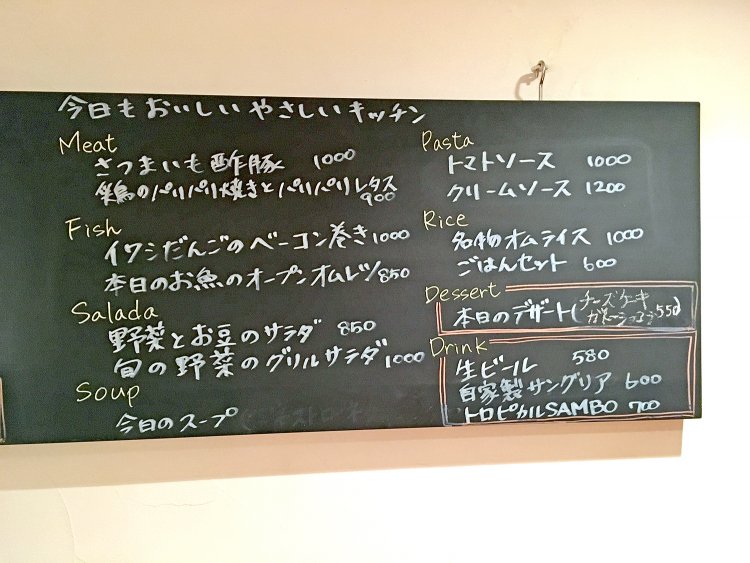 今日もおいしいやさしいキッチン
Meat
さつまいも酢豚 1000
鶏のパリパリ焼きとパリパリレタス
900
Fish
イワシだんごのベーコン巻き 1000
本日のお魚のオープンオムレツ 850
Salada
野菜とお豆のサラダ 850
旬の野菜のグリルサラダ 1000
Soup
今日のスープ
Pasta
トマトソース 1000
クリームソース 1200
Rice
名物オムライス 1000
ごはんセット 600
Dessert
本日のデザート(チーズケーキ
ガトーショコラ 550)
Drink
生ビール 580
自家製サングリア 600
トロピカルSAMBO 700